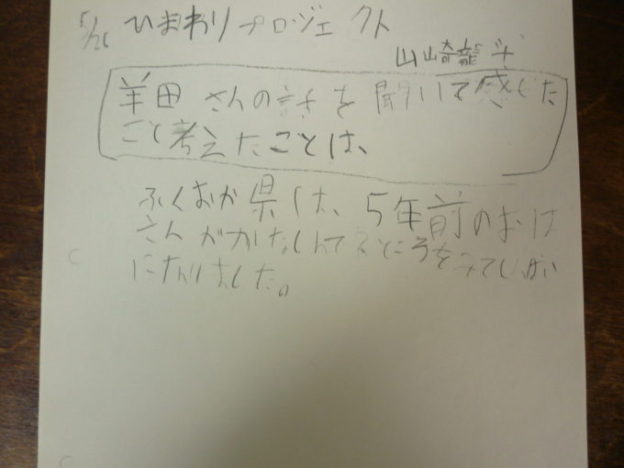 5/26 ひまわりプロジェクト
山崎龍斗
羊田さんの話を聞いて感じた
こと考えたことは、
ふくおか県は、5年前のおは
さんがかなしんで
になりました。